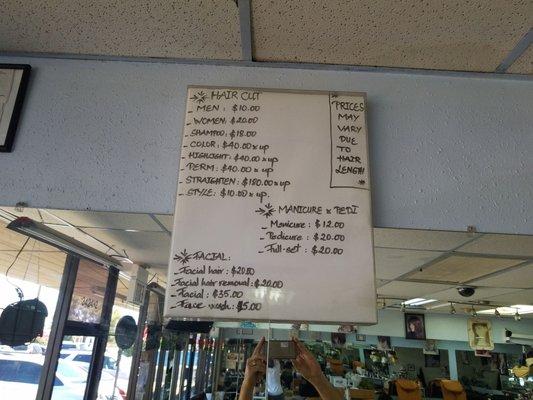 HAIR CUT
- MEN : $10.00
- WOMEN: $20.00
- SHAMPOO: $18.00
- COLOR: $40.00 x up
- HIGHLIGHT: $40.00 x up
- PERM : $40.00 x up
- STRAIGHTEN : $180.00 x up
- STYLE: $10.00 x up.
PRICES
MAY
VARY
DUE
TO
HAIR
LENGHT
MANICURE x PEDI
- Manicure : $12.00
- Pedicure : $20.00
- Full-set : $20.00
FACIAL:
Facial hair : $20.00
- Facial hair removal : $20.00
- Facial : $35.00
- Face wash : $5.00